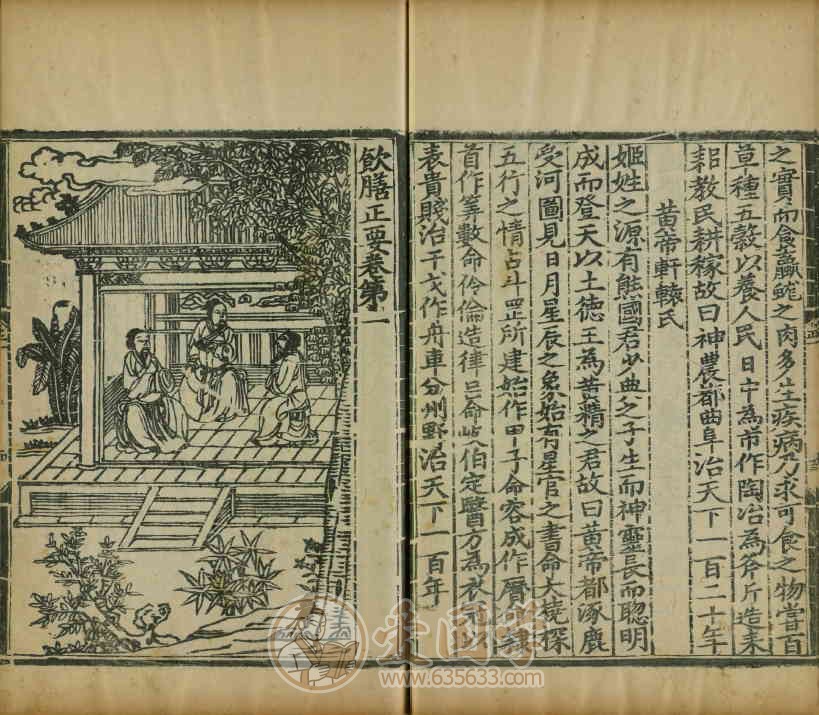 之實而食蠃蛖之肉多生疾病乃求可食之物嘗百
草種五穀以養人民日中為市作陶冶為斧斤造耒
耜教民耕稼故曰神農都曲阜治天下一百二十年
黃帝軒轅氏
姬姓之源有熊國君少典之子生而神靈長而聰明
成而登天以土德王為黃精之君故曰黃帝都涿鹿
受河圖見日月星辰之象始有星官之書命大撓探
五行之情占斗罡所建始作甲子命容成作曆命隸
首作筭數命伶倫造律呂命岐伯定醫方為衣冠以
表貴賤治干戈作舟車分州野治天下一百年
飲膳正要卷第一
爱国学
www.635633.com